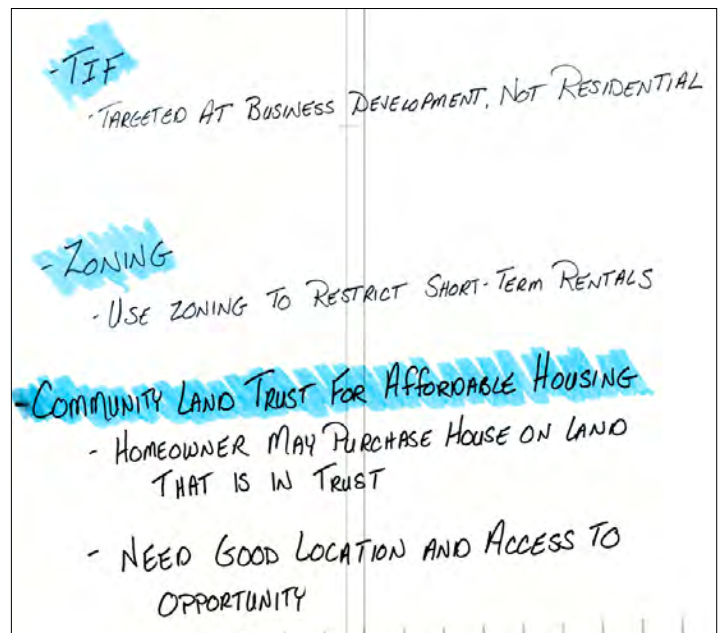 - TIF
- TARGETED AT BUSINESS DEVELOPMENT, NOT RESIDENTIAL
- ZONING
- USE ZONING TO RESTRICT SHORT-TERM RENTALS
- COMMUNITY LAND TRUST FOR AFFORDABLE HOUSING
- HOMEOWNER MAY PURCHASE HOUSE ON LAND
THAT IS IN TRUST
- NEED GOOD LOCATION AND ACCESS TO
OPPORTUNITY